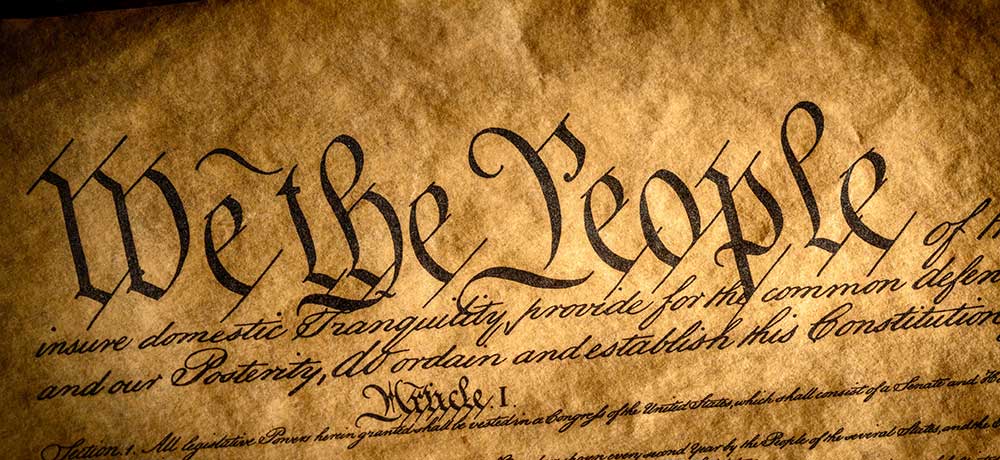 We the People of
insure domestic Tranquility, provide for the common defen
and our Posterity, do ordain and establish this Constitution
Article. I.
Section. 1. All legislative Powers herein granted shall be vested in a Congress of the United States, which shall consist of a Senate and Ho
every second Year by the People of the several States, and the